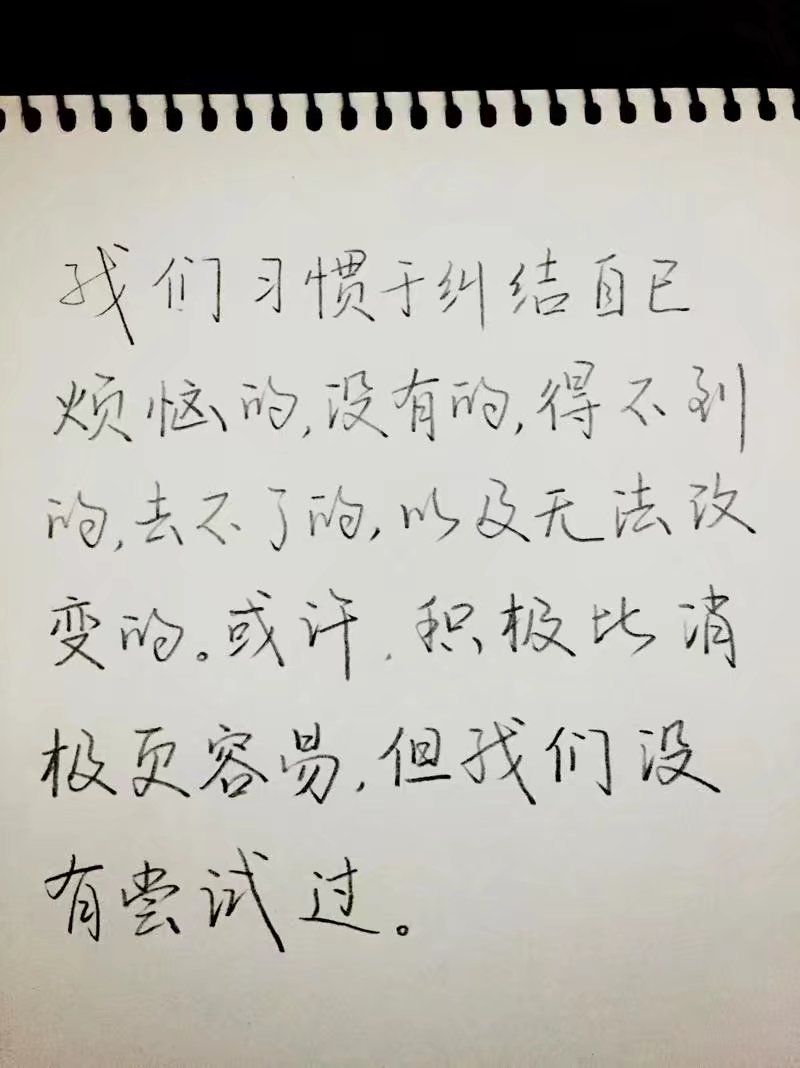 我们习惯于纠结自己
烦恼的,没有的,得不到
的,去不了的,以及无法改
变的。或许,积极比消
极更容易,但我们没
有尝试过。